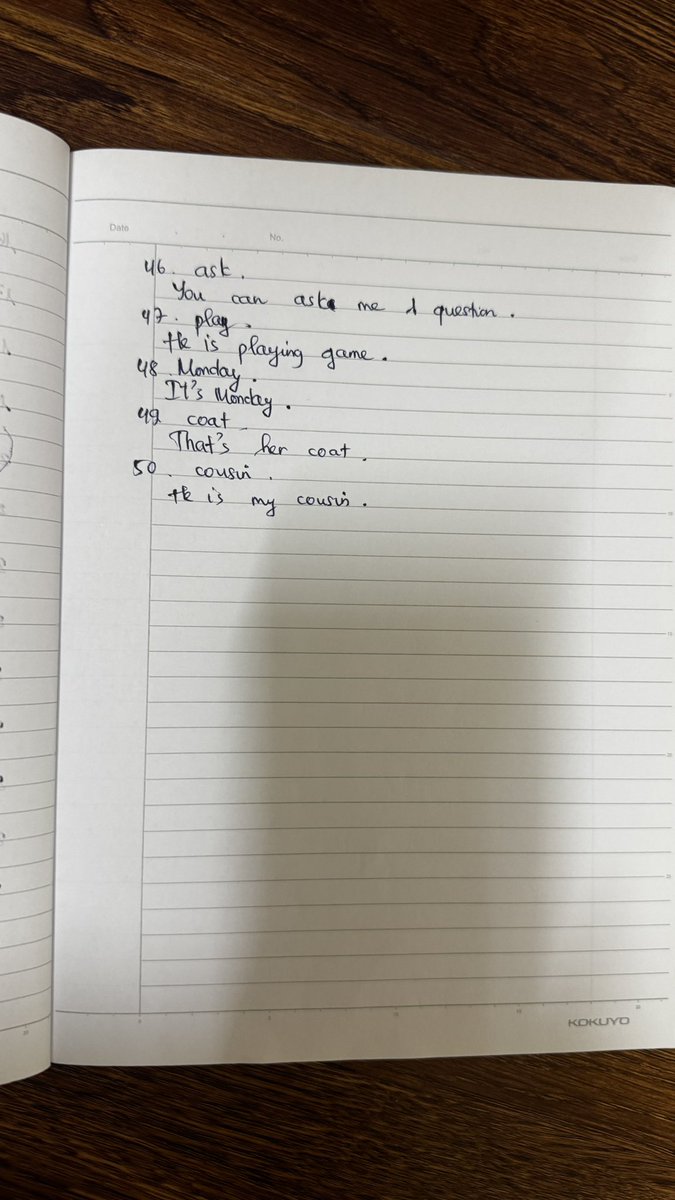 Date No.
46. ask.
You can ask me 1 question.
47. play.
He is playing game.
48. Monday.
It's Monday.
49. coat.
That's her coat.
50. cousin.
He is my cousin.
KOKUYO